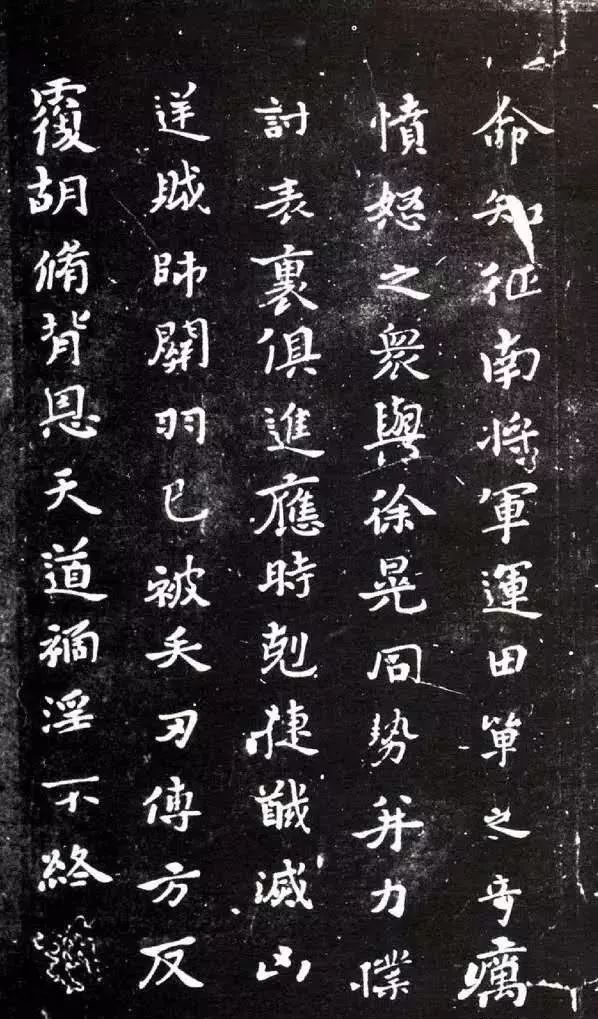 命知征南將軍運田單之奇厲
憤怒之衆與徐晃同勢并力撲
討表裏俱進應時剋捷馘滅凶
逆賊帥關羽已被矢刃傅方反
覆胡脩背恩天道禍淫不終